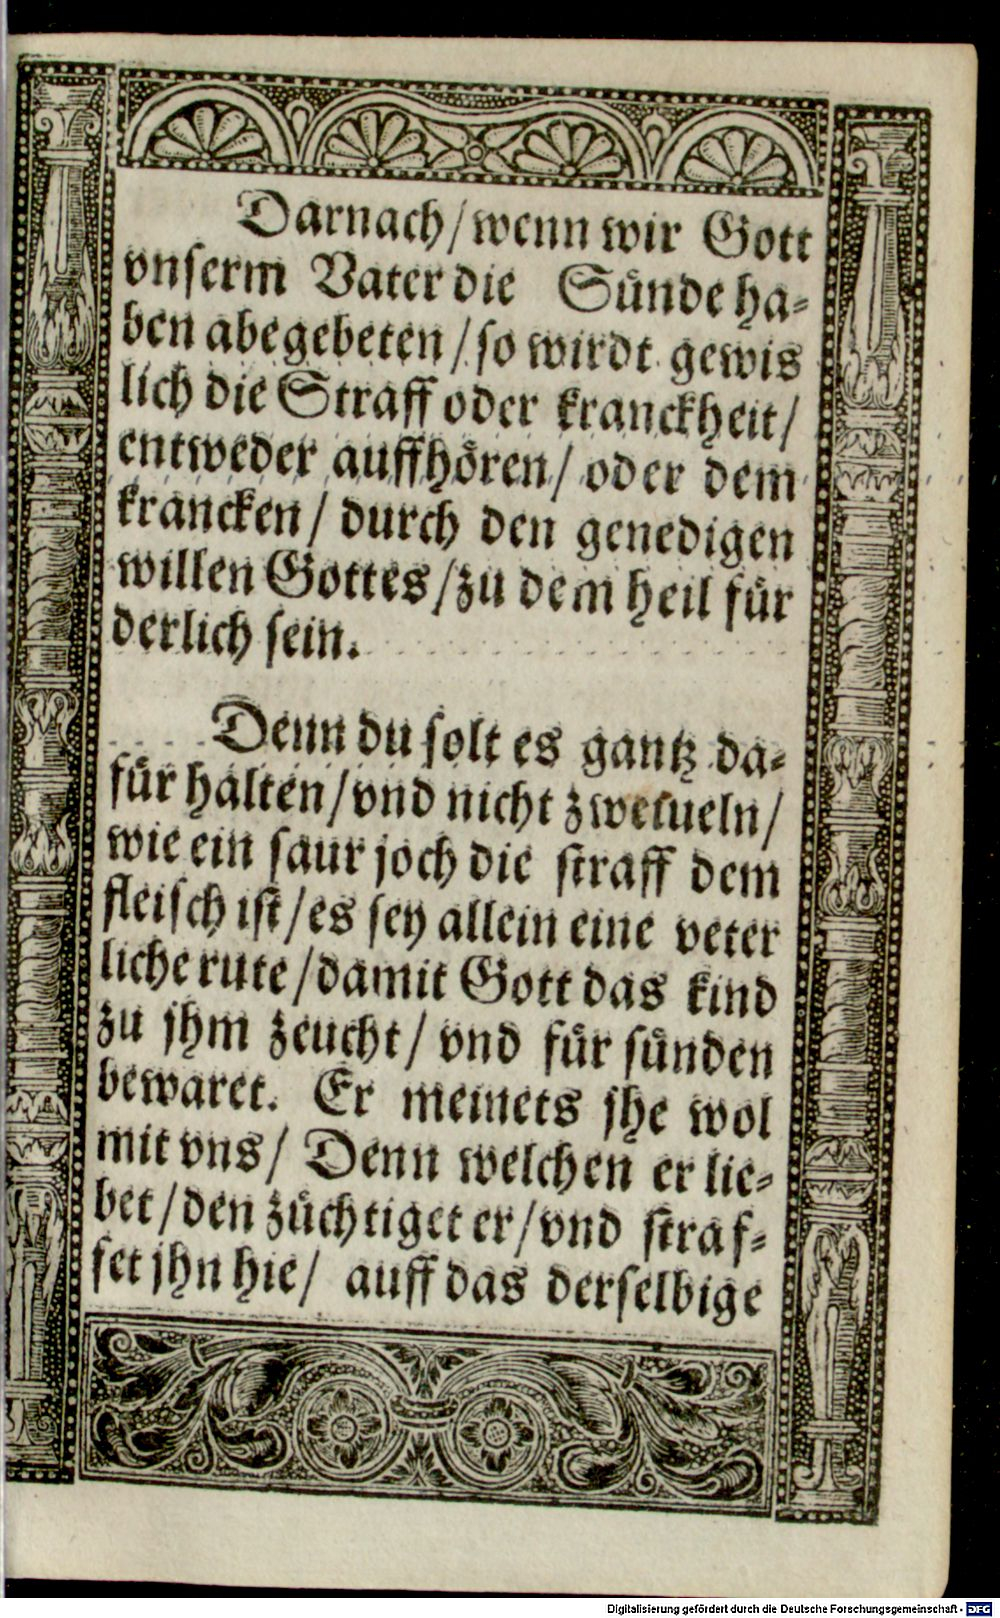 Darnach/ wenn wir Gott
vnserm Vater die Suͤnde ha⸗
ben abegebeten/ so wirdt gewis
lich die Straff oder kranckheit/
entweder auffhoͤren/ oder dem
krancken/ durch den genedigen
willen Gottes/ zu dem heil fuͤr
derlich sein.
Denn du solt es gantz da⸗
fuͤr halten/ vnd nicht zweiueln/
wie ein saur joch die straff dem
fleisch ist/ es sey allein eine veter
liche rute/ damit Gott das kind
zu jhm zeucht/ vnd fuͤr suͤnden
bewaret. Er meinets jhe wol
mit vns/ Denn welchen er lie⸗
bet/ den zuͤchtiget er/ vnd straf⸗
fet jhn hie/ auff das derselbige
Digitalisierung gefördert durch die Deutsche Forschungsgemeinschaft - DFG